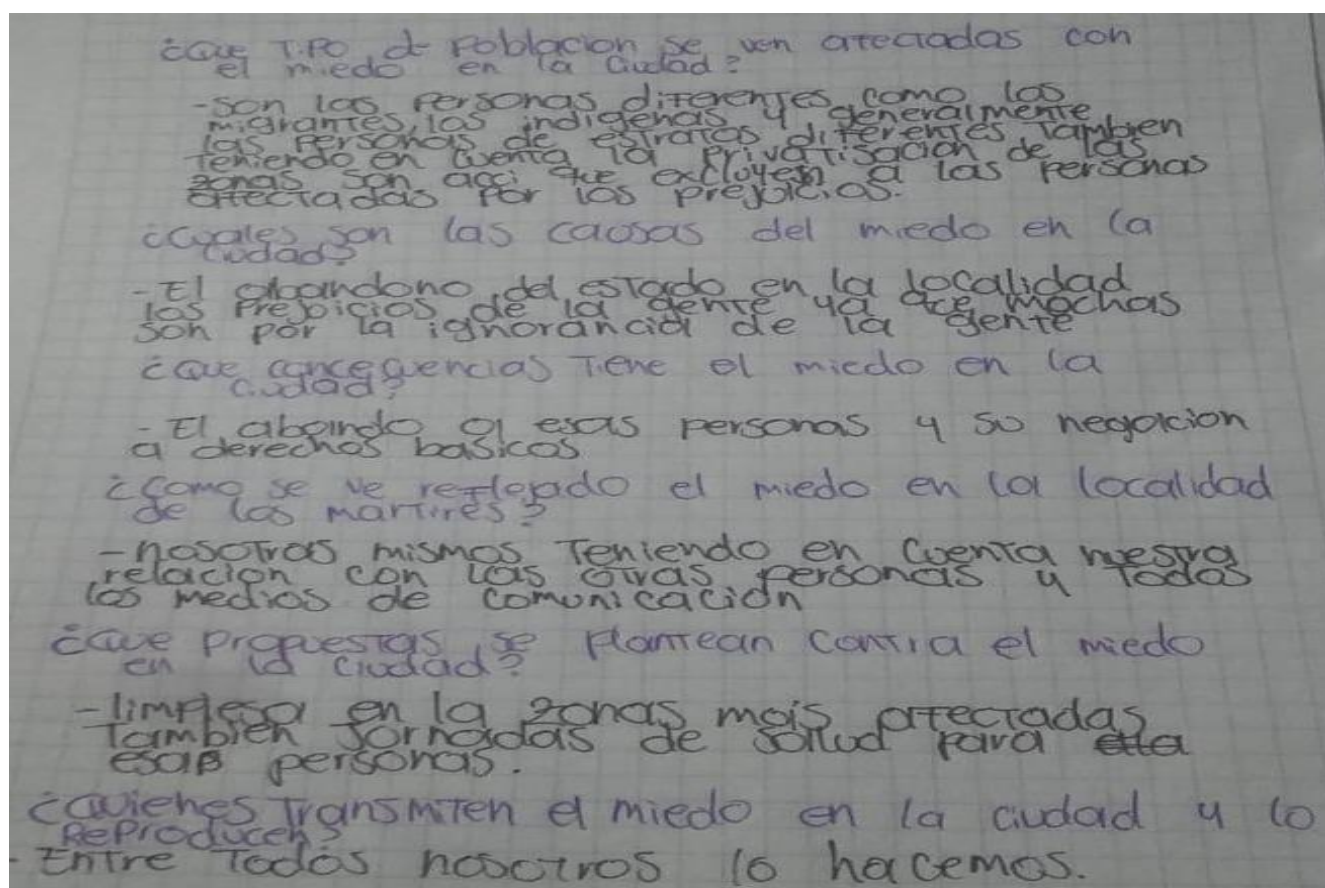 ¿Que Tipo de Poblacion se ven afectadas con
el miedo en la ciudad?
-son las Personas diferentes como los
migrantes, los indigenas y generalmente
las Personas de estratos diferentes, tambien
teniendo en cuenta la Privatisacion de las
zonas son aqci que excluyen a las Personas
affectadas Por los prejuicios.
¿Cuales son las causas del miedo en la
ciudad?
-El abandono del estado en la localidad
los Prejoicios de la gente ya que mochas
son por la ignorancia de la gente
¿Que concequencias Tiene el miedo en la
ciudad?
-El abaindo a esas personas y su negacion
a derechos basicos
¿Como se ve reflejado el miedo en la localidad
de los martires?
-nosotros mismos Teniendo en cuenta nuestra
relacion con las otras personas y todos
los medios de comunicación
¿Que Propuestas se Plantean contra el miedo
en la ciudad?
-limplesa en la zonas mais affectadas
Tambien Jornadas de Salud Para
esas personas.
¿Quienes Transmiten el miedo en la ciudad y lo
Reproducen?
-Entre Todos nosotros lo hacemos.